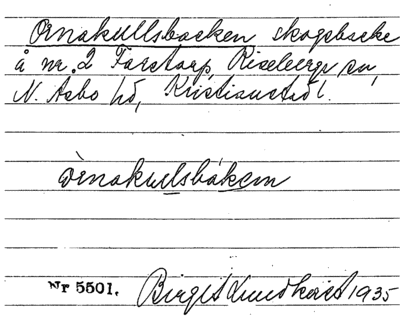 Ornakullsbacken skogsbacke
å nr. 2 Färstorp, Riseberga sn,
N. Åsbo hd, Kristianstad l.
ò̀rnakullsbákem
Nr 5501. Birgit Lundkvist 1935